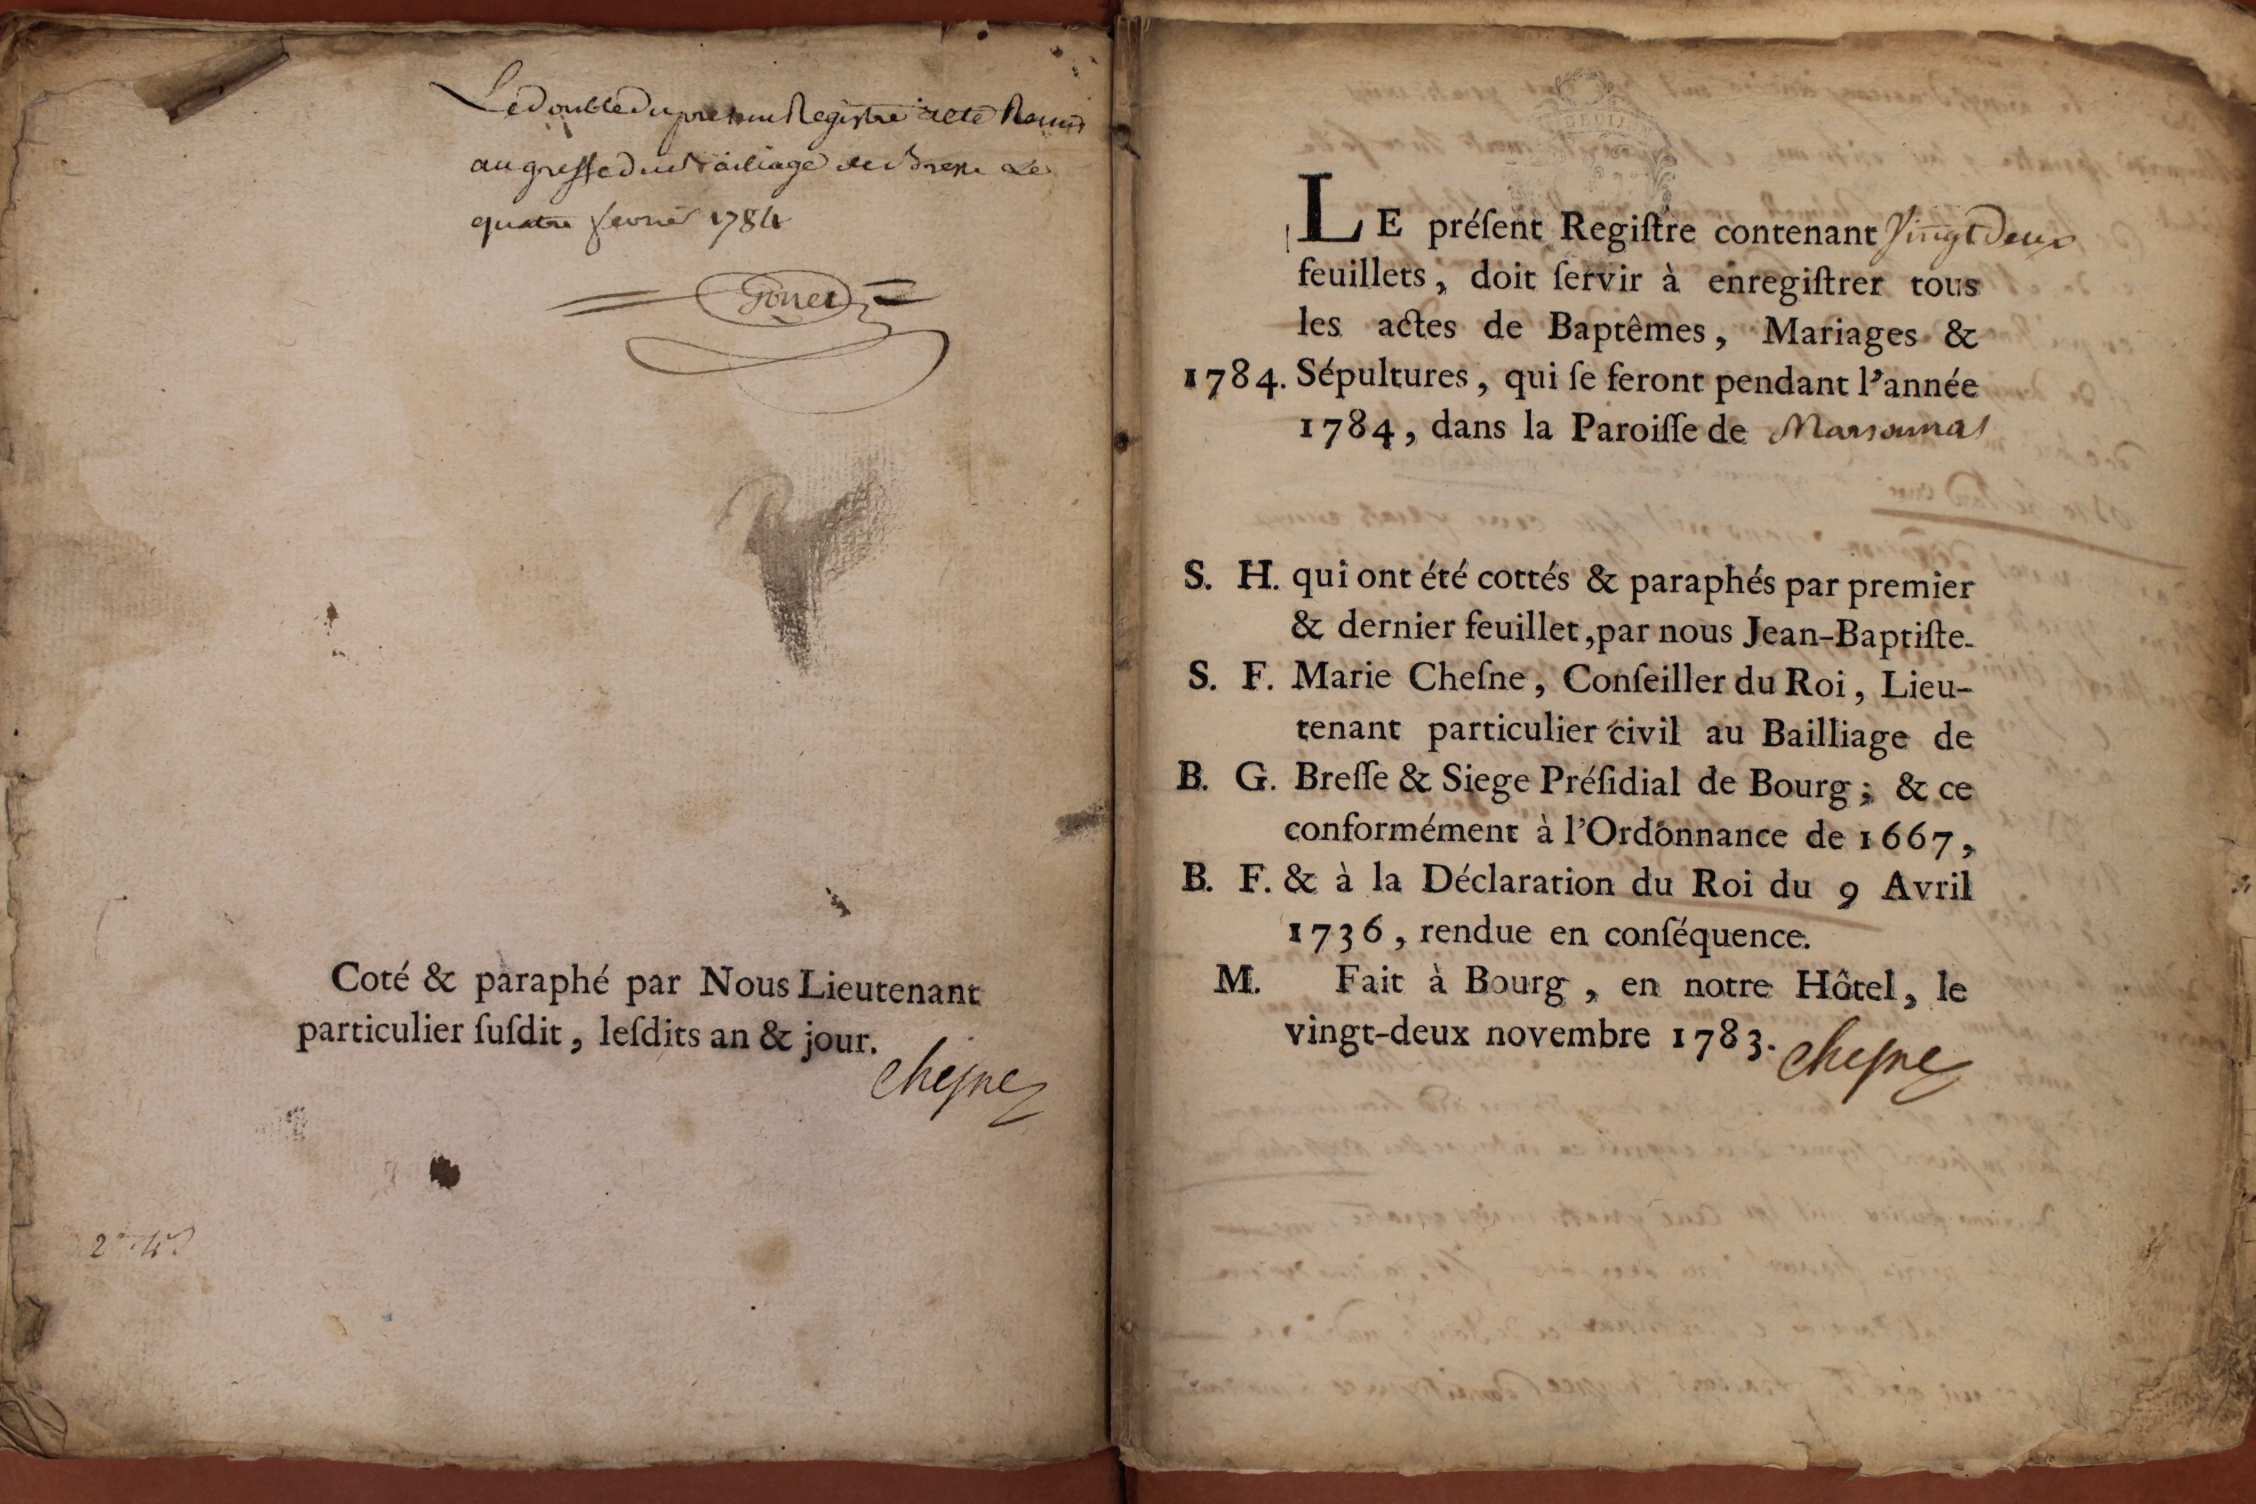 Le double du present Registre a eté Remis
au greffe du Bailiage de Bresse Le
quatre fevrier 1784
Coté & paraphé par Nous Lieutenant
particulier ſuſdit, leſdits an & jour.
cheſne
LE préſent Regiſtre contenant Vingt Deux
feuillets, doit ſervir à enregiſtrer tous
les actes de Baptêmes, Mariages &
1784. Sépultures, qui ſe feront pendant l'année
1784, dans la Paroiſſe de Marsonnas
S. H. qui ont été cottés & paraphés par premier
& dernier feuillet, par nous Jean-Baptiſte-
S. F. Marie Cheſne, Conſeiller du Roi, Lieu-
tenant particulier civil au Bailliage de
B. G. Breſſe & Siege Préſidial de Bourg; & ce
conformément à l'Ordonnance de 1667,
B. F. & à la Déclaration du Roi du 9 Avril
1736, rendue en conſéquence.
M. Fait à Bourg, en notre Hôtel, le
vingt-deux novembre 1783.
cheſne